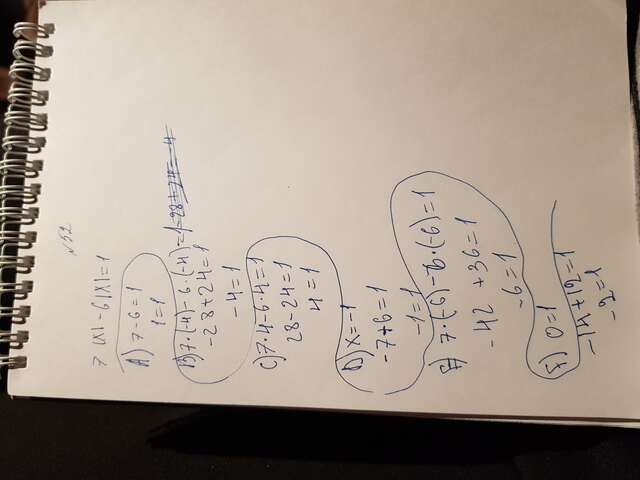 N52
7 |x| - 6|x|=1
A) 7-6=1
1=1
B) 7·(-4)-6·(-4)=1
-28+24=1
-4=1
C) 7·4-6·4=1
28-24=1
4=1
D) x=-1
-7+6=1
-1=1
E) 7·(-6)-6·(-6)=1
-42 +36=1
-6=1
F) 0=1
-14+12=1
-2=1